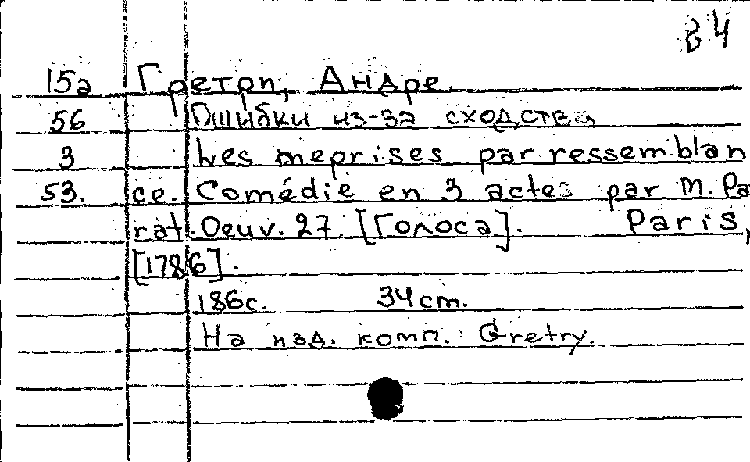 84
15а Гретри, Андре.
56 Ошибки из-за сходства
3 Les meprises par ressemblan
53. ce. Comédie en 3 actes par M. Pa
rat. Oeuv. 27. [Голоса]. Paris,
[1786].
186с. 34 cm.
На изд. комп.: Gretry.